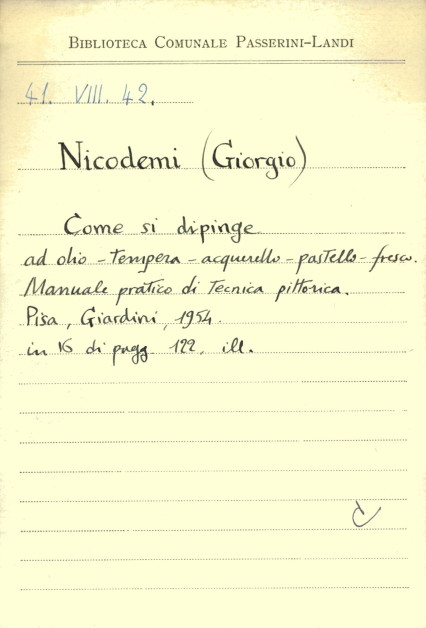 BIBLIOTECA COMUNALE PASSERINI-LANDI
41. VIII. 42.
Nicodemi (Giorgio)
Come si dipinge
ad olio - tempera - acquerello - pastello - fresco.
Manuale pratico di Tecnica pittorica.
Pisa, Giardini, 1954.
in 16 di pagg. 122, ill.